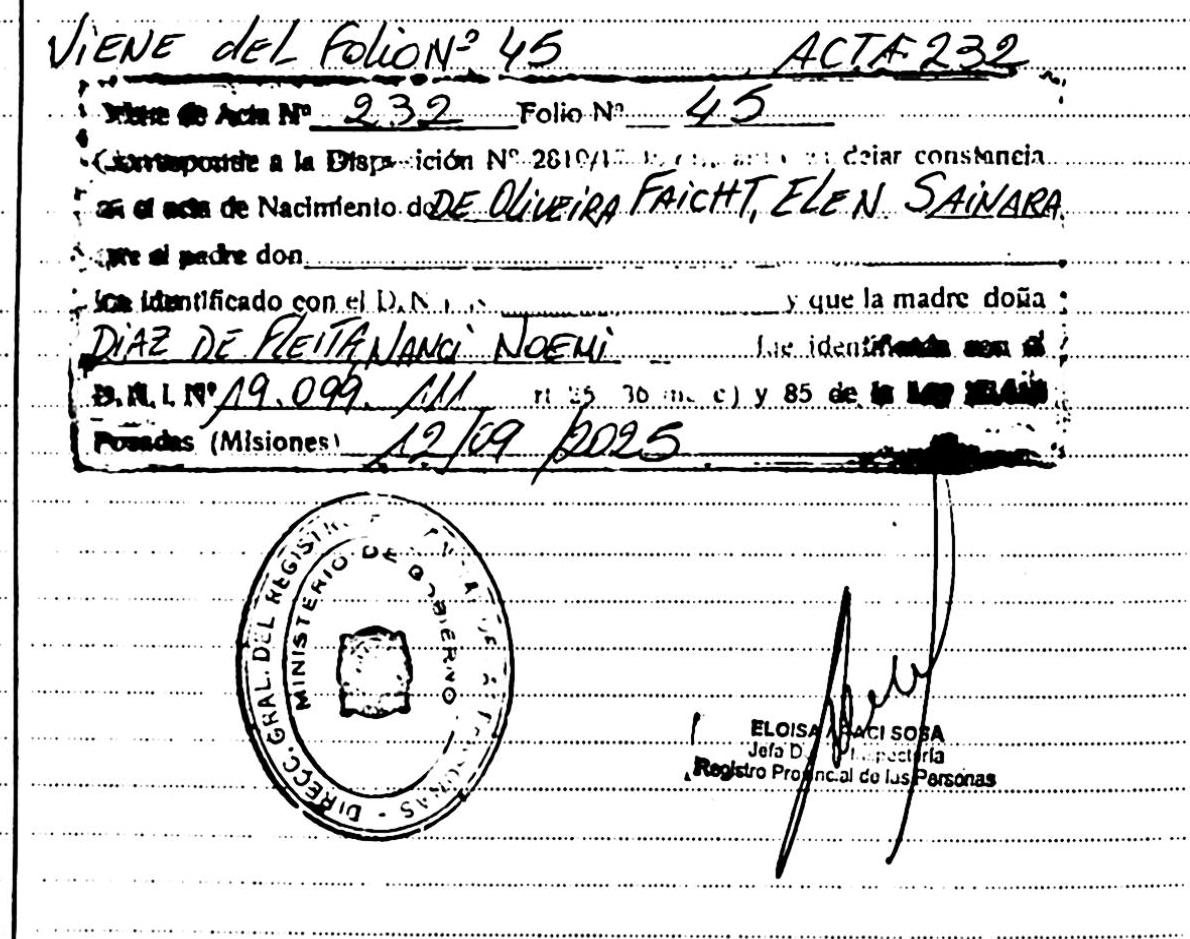 VIENE dEL FoLioNº 45 ACTA 232
Viene de Acta Nº 232 Folio Nº 45
(Corresponde a la Disposición Nº 2819/ dejar constancia
en el acta de Nacimiento de DE OLIVEIRA FAICHT, ELEN SAINARA
que el padre don
fue identificado con el D. N. I. y que la madre doña
DIAZ DE FLEITA NANCI NOEMI fue identificada con el
D. N. I. Nº 19.099.111 rt 35 36 inc c) y 85 de la Ley
Posadas (Misiones) 12/09/2025
DIRECC. GRAL. DEL REGISTR PERSONAS -
MINISTERIO DE GOBIERNO
ELOISA ACI SOSA
Jefa D Inspectoría
Registro Provincial de las Personas